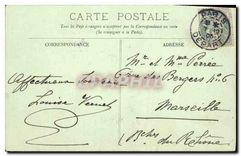 CARTE POSTALE
Tous les Pays étrangers n'acceptent pas la Correspondance au recto
(Se renseigner à la Poste)
CORRESPONDANCE
ADRESSE
PARIS
DEPART
Mr et Mme Perrée
Rue des Bergers No 6
Affectueux
Louise Vernet
Marseille
Bches du Rhône